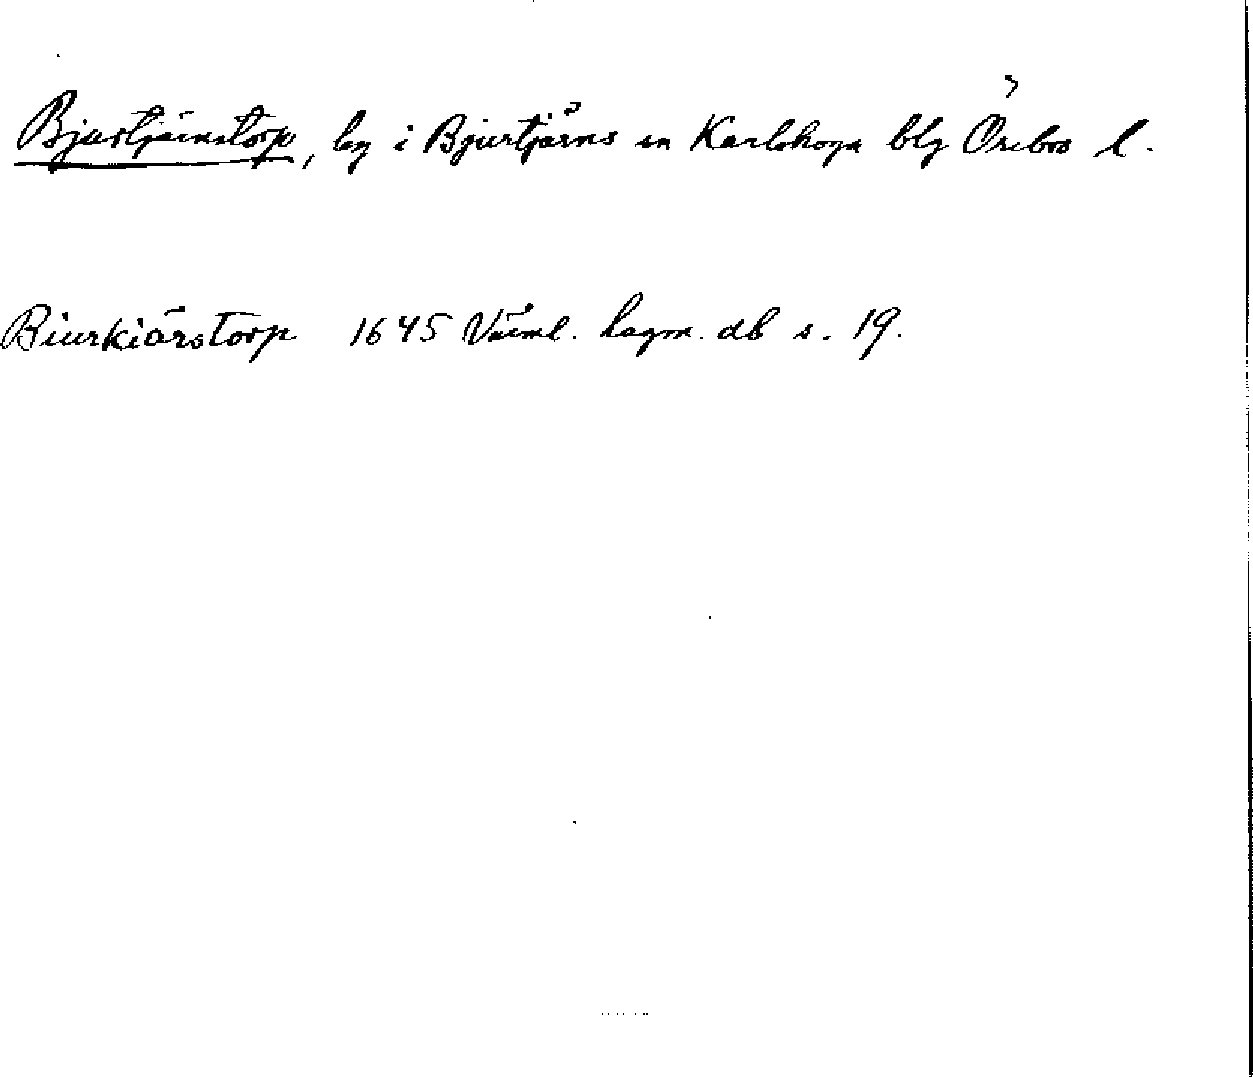 Bjurtjärnstorp, by i Bjurtjärns sn Karlskoga blg Örebro l.
Biurkiärstorp 1645 Värml. lagm. db s. 19.